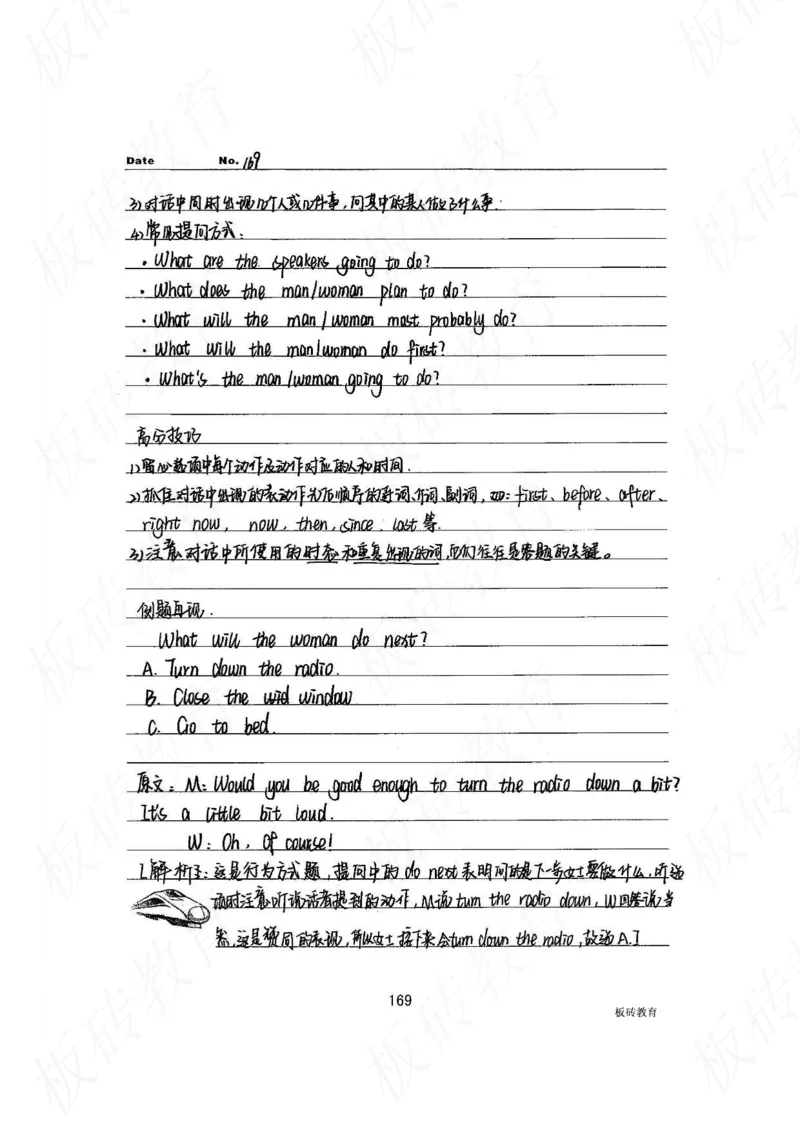 Date No. 169
3)对话中同时出现几个人或几件事,问其中的某人做了什么事.
4)常见提问方式:
· What are the speakers going to do?
· What does the man/woman plan to do?
· What will the man/woman most probably do?
· What will the man/woman do first?
· What's the man/woman going to do?
高分技巧
1)留心选项中每个动作及动作对应的人和时间.
2)抓住对话中出现的表动作先后顺序的连词、介词、副词,如:first、before、after、
right now, now, then, since, last 等.
3)注意对话中所使用的时态和重复出现的词,它们往往是答题的关键。
例题再现.
What will the woman do next?
A. Turn down the radio.
B. Close the wid window
C. Go to bed.
原文: M: Would you be good enough to turn the radio down a bit?
It's a little bit loud.
W: Oh, Of course!
[解析]: 这是行为方式题,提问中的 do next 表明问的是下一步女士要做什么,听话
读时注意听说话者提到的动作,M说 turn the radio down, W回答说当
然,这是赞同的表现,所以女士接下来会turn down the radio,故选A.]
169
板砖教育